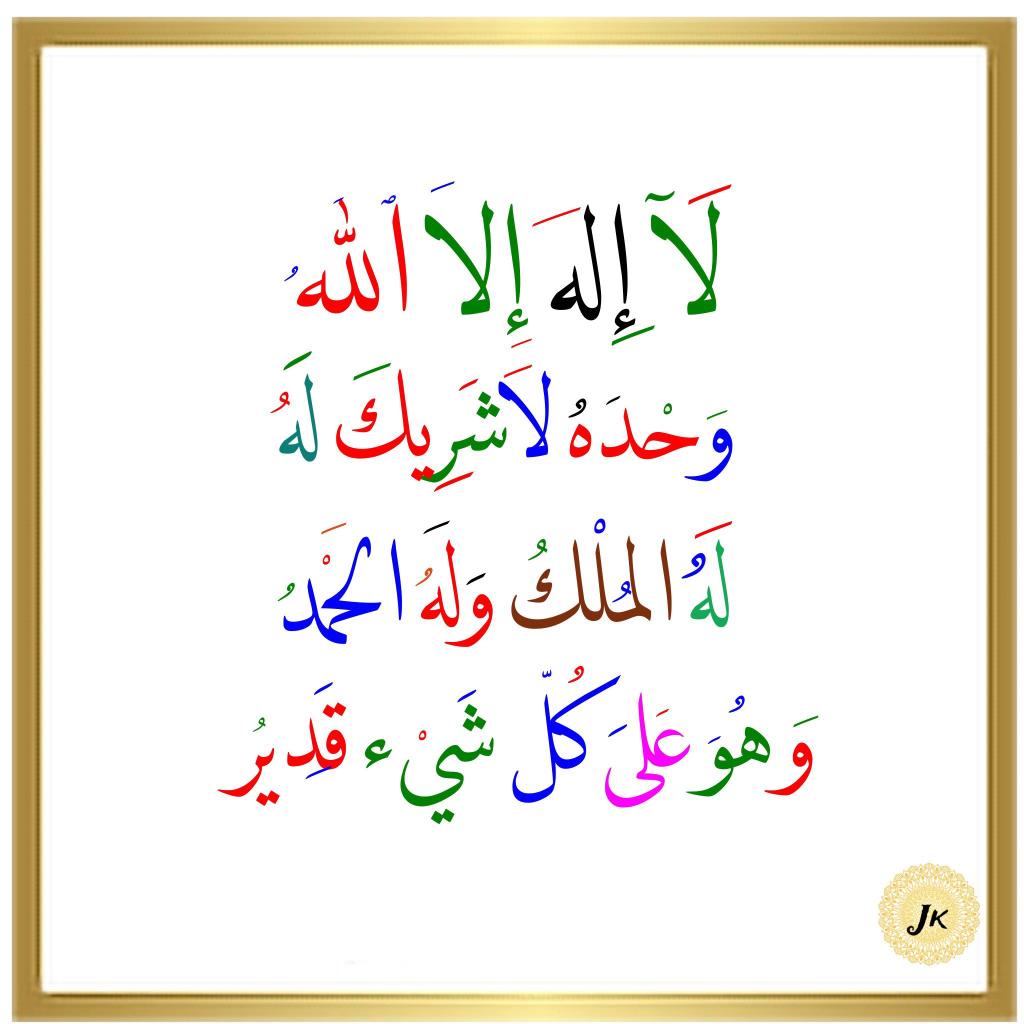 لَآ إِلهَ إِلاَ ٱللهُ
وَحْدَهُ لاَشَرِيكَ لَهُ
لَهُ المُلْكُ وَلَهُ الحَمْدُ
وَهُوَ عَلىَ كُلّ شَيْء قَدِيرُ
JK